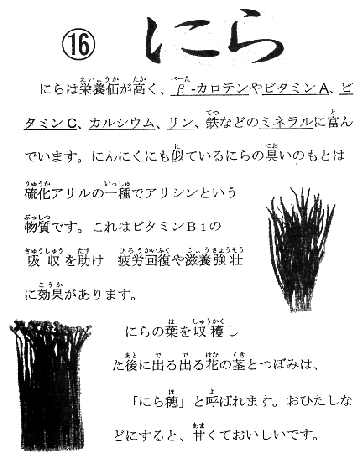 ⑯ にら
にらは栄養価が高く、β-カロテンやビタミンA、ビ
タミンC、カルシウム、リン、鉄などのミネラルに富ん
でいます。にんにくにも似ているにらの臭いのもとは
硫化アリルの一種でアリシンという
物質です。これはビタミンB1の
吸収を助け 疲労回復や滋養強壮
に効果があります。
にらの葉を収穫し
た後に出る出る花の茎とつぼみは、
「にら穂」と呼ばれます。おひたしな
どにすると、甘くておいしいです。